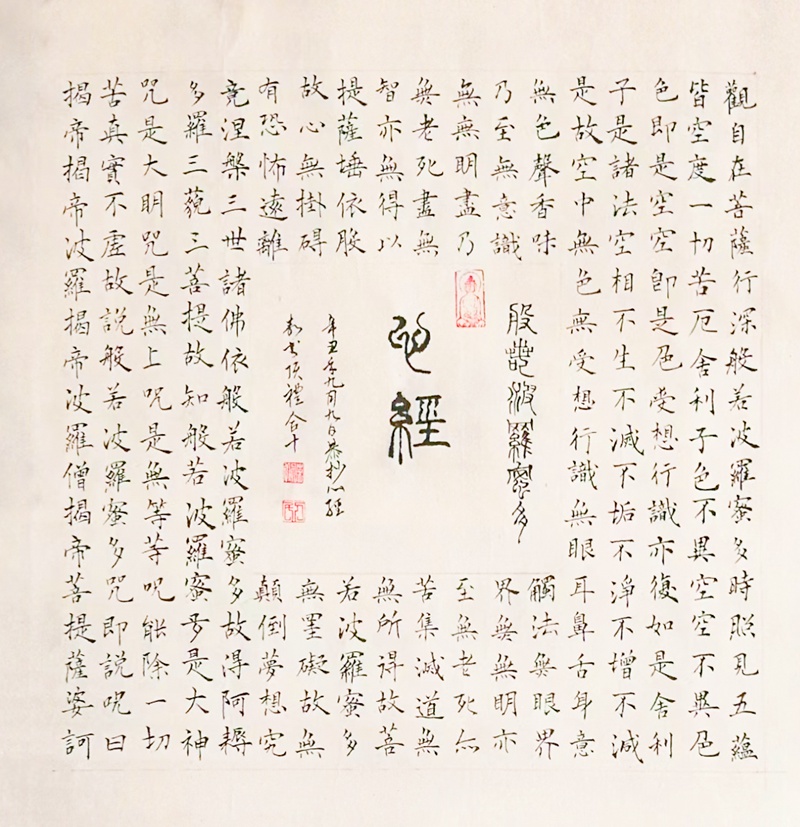 觀自在菩薩行深般若波羅蜜多時照見五蘊
皆空度一切苦厄舍利子色不異空空不異色
色即是空空即是色受想行識亦復如是舍利
子是諸法空相不生不滅不垢不淨不增不減
是故空中無色無受想行識無眼耳鼻舌身意
無色聲香味
觸法無眼界
乃至無意識
界無無明亦
無無明盡乃
至無老死亦
無老死盡無
苦集滅道無
智亦無得以
無所得故菩
提薩埵依般
若波羅蜜多
故心無掛碍
無罣礙故無
有恐怖遠離
顛倒夢想究
竟涅槃三世諸佛依般若波羅蜜多故得阿耨
多羅三藐三菩提故知般若波羅蜜多是大神
咒是大明咒是無上咒是無等等咒能除一切
苦真實不虛故說般若波羅蜜多咒即說咒曰
揭帝揭帝波羅揭帝波羅僧揭帝菩提薩婆訶
般若波羅蜜多
心經
辛丑年九月九日恭抄心經
書頂禮合十